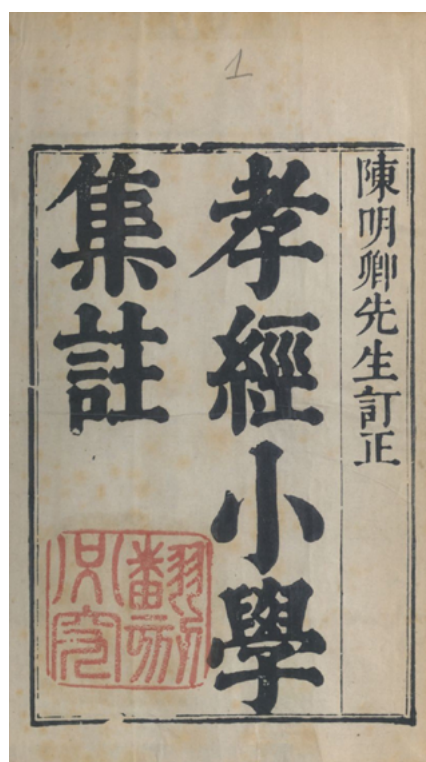 1
陳明卿先生訂正
孝經小學
集註
翻刻
必究